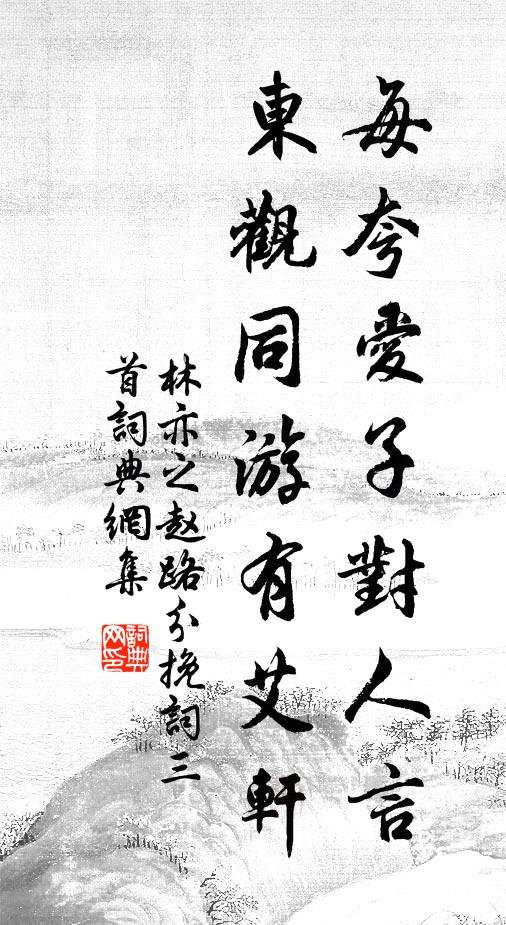 每夸愛子對人言
東觀同游有艾軒
林亦之趙路分挽詞三
首詞典網集
詞典
网印